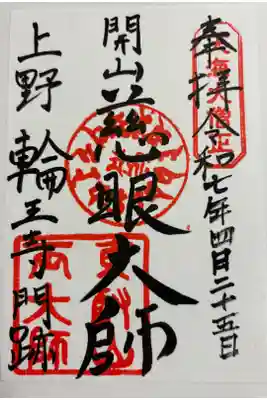 奉拝令和七年四月二十五日
開山慈眼大師
上野輪王寺門跡
両大師